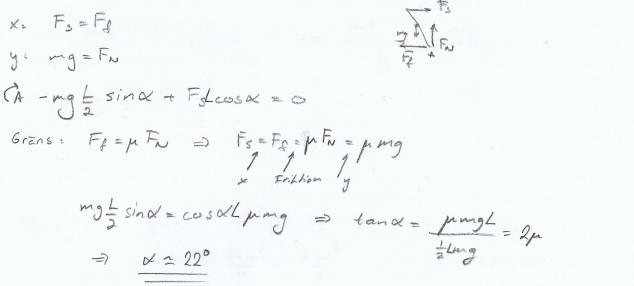 x: Fs = Ff
Fs
y: mg = FN
mg FN
Ff A
A -mg L/2 sinα + FsLcosα = 0
Gräns: Ff = μ FN ⇒ Fs = Ff = μ FN = μ mg
x Friktion y
mg L/2 sinα = cosαL μmg ⇒ tanα = μmgL / ½Lmg = 2μ
⇒ α ≃ 22°